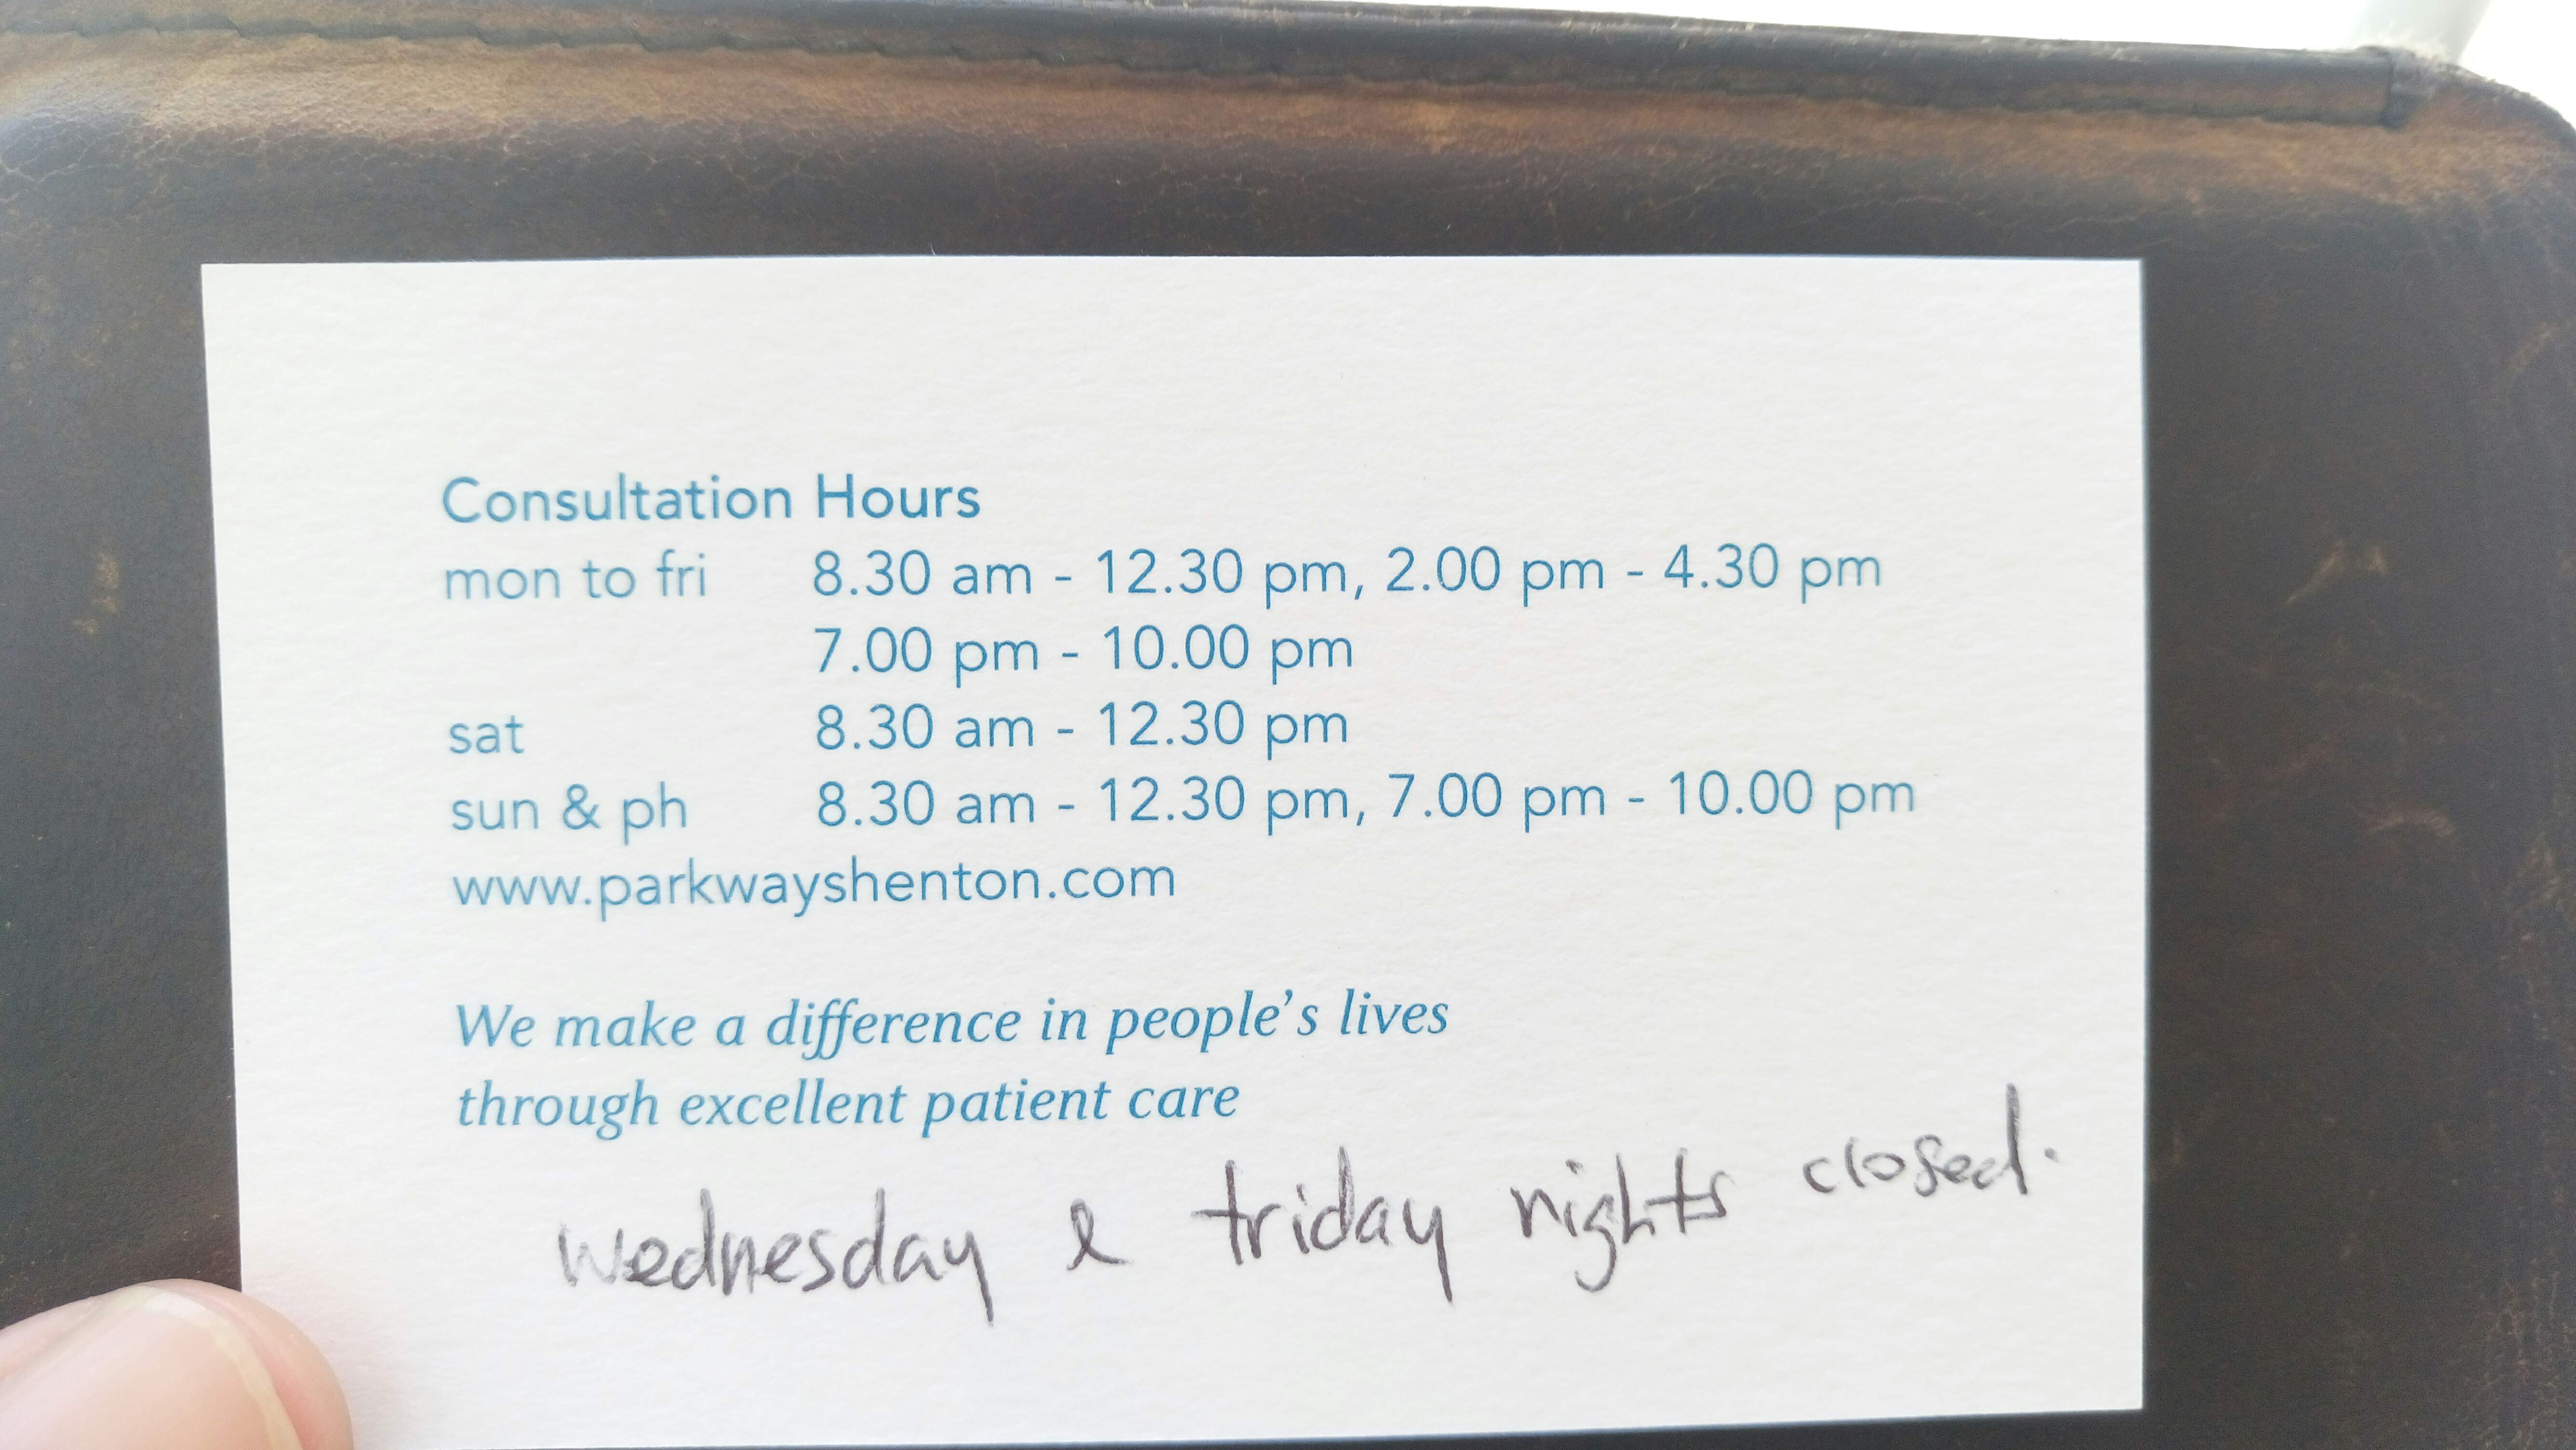 Consultation Hours
mon to fri 8.30 am - 12.30 pm, 2.00 pm - 4.30 pm
7.00 pm - 10.00 pm
sat 8.30 am - 12.30 pm
sun & ph 8.30 am - 12.30 pm, 7.00 pm - 10.00 pm
www.parkwayshenton.com
We make a difference in people's lives
through excellent patient care
wednesday & friday nights closed.